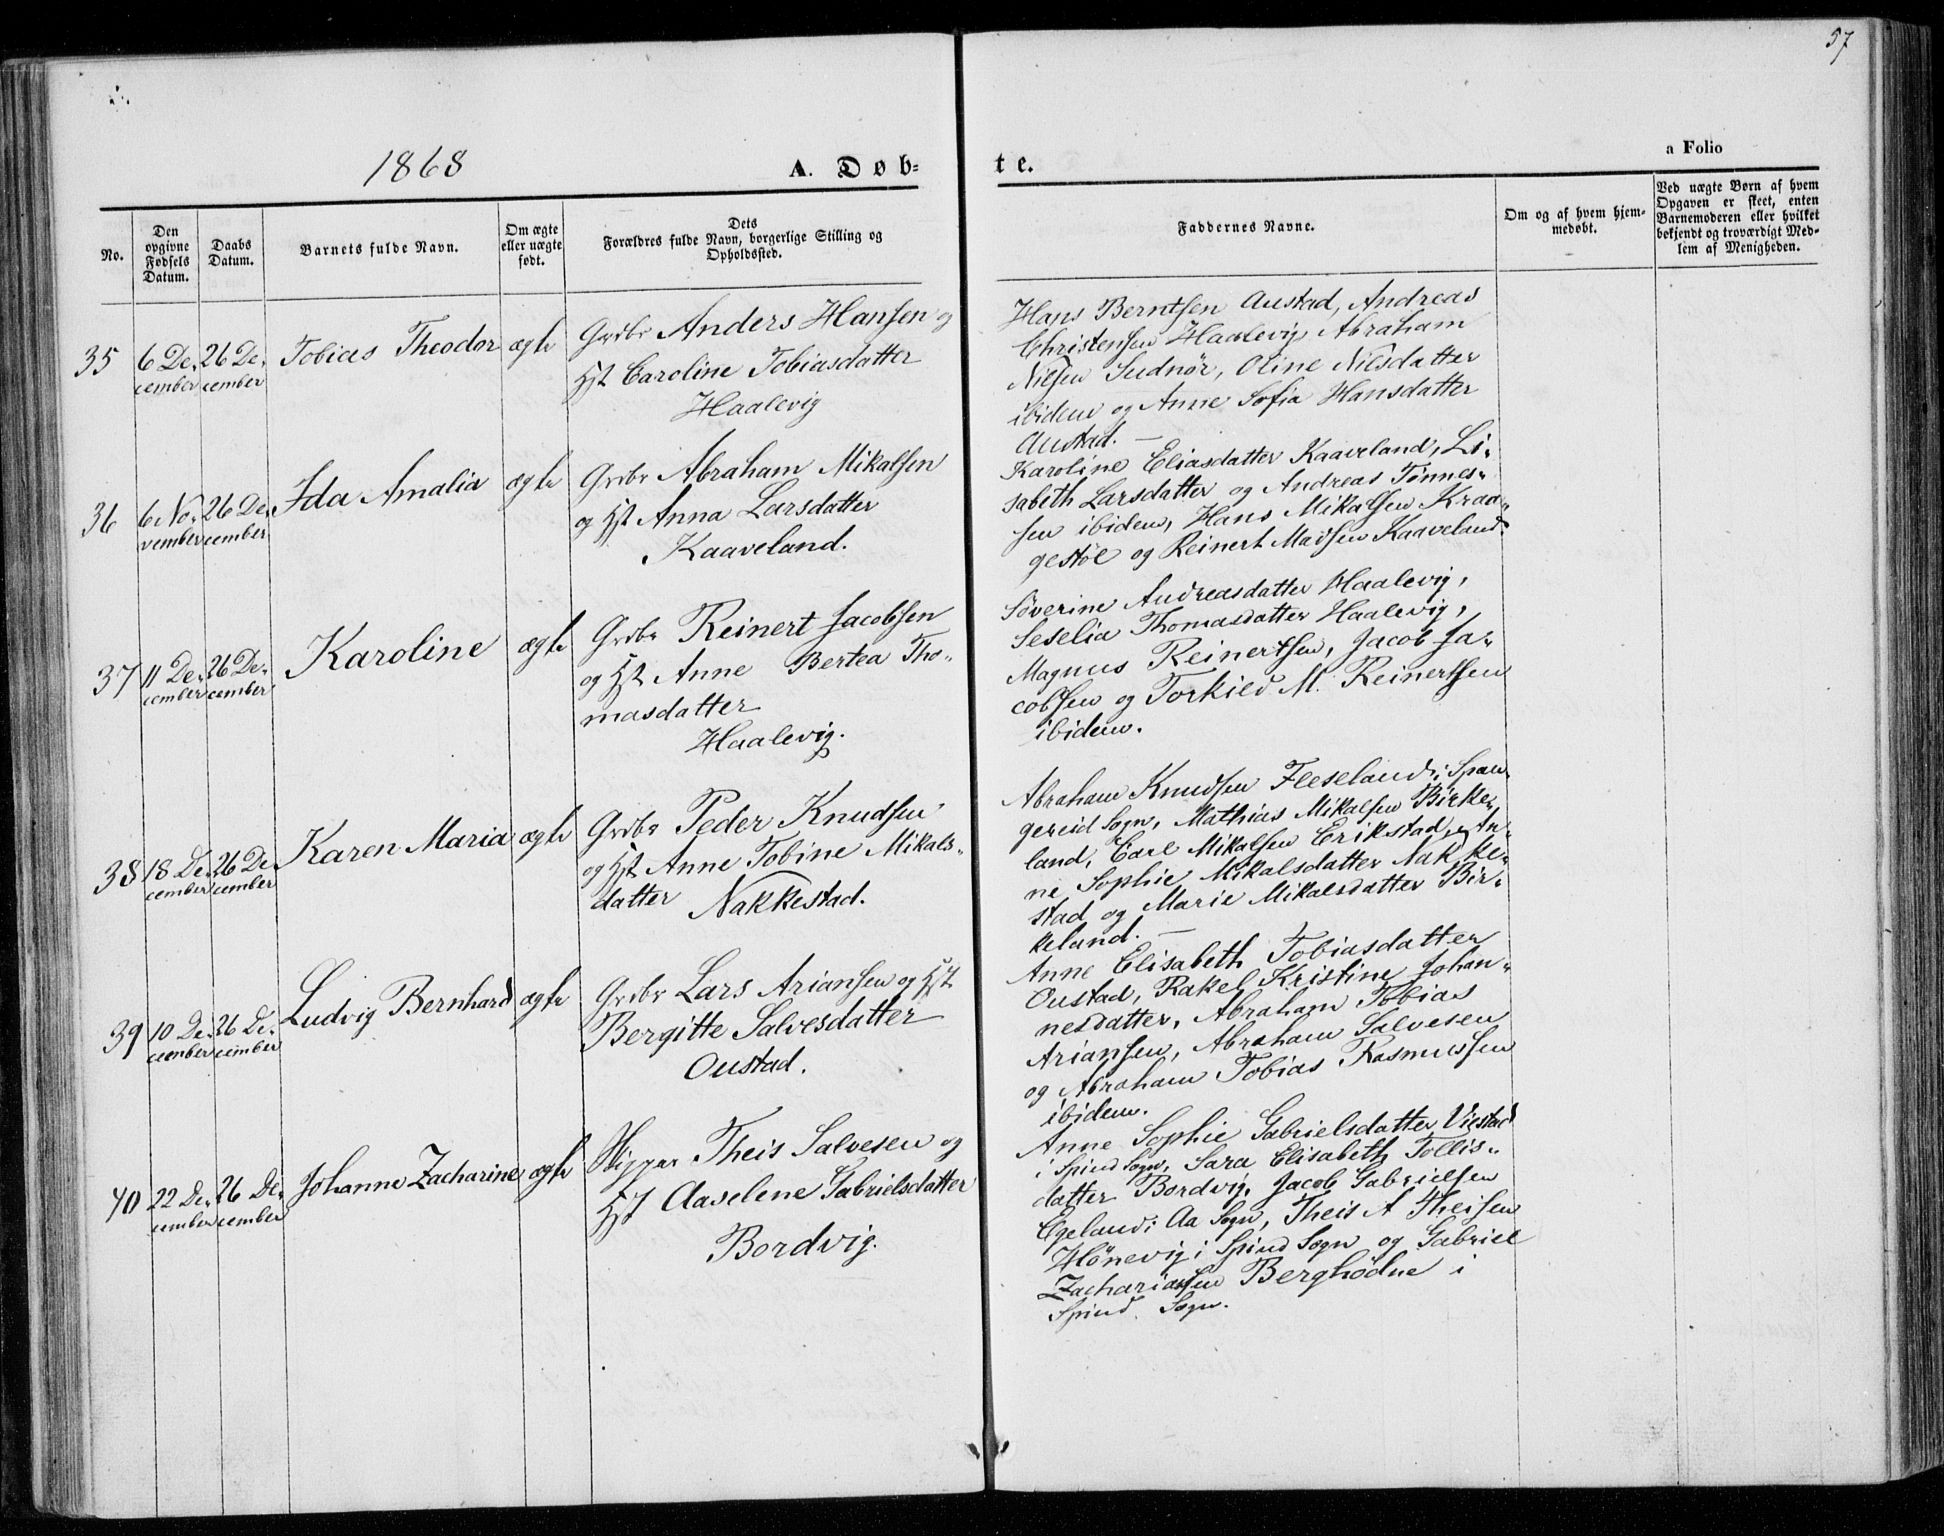 57
1868
A. Døb-
te.
a Folio
No.
Den
opgivne
Fødsels
Datum.
Daabs
Datum.
Barnets fulde Navn.
Om ægte
eller uægte
født.
Dets
Forældres fulde Navn, borgerlige Stilling og
Opholdssted.
Faddernes Navne.
Om og af hvem hjem-
medøbt.
Ved uægte Børn af hvem
Opgaven er skeet, enten
Barnemoderen eller hvilket
bekjendt og troværdigt Med-
lem af Menigheden.
35
6 De-
cember
26 De-
cember
Tobias Theodor
ægte
Grdbr Anders Hansen og
Hst Caroline Tobiasdatter
Haalevig
Hans Berntsen Austad, Andreas
Christensen Haalevig, Abraham
Nilsen Sudnør, Oline Nilsdatter
ibidem og Anne Sofia Hansdatter
Austad. —
36
6 No-
vember
26 De-
cember
Ida Amalia
ægte
Grdbr Abraham Mikalsen
og Hst Anna Larsdatter
Kaaveland.
Karoline Eliasdatter Kaaveland, Li-
sabeth Larsdatter og Andreas Tønnes-
sen ibidem, Hans Mikalsen Kraa-
gestøl og Reinert Madsen Kaaveland.
37
11 De-
cember
26 De-
cember
Karoline
ægte
Grdbr Reinert Jacobsen
og Hst Anne Bertea Tho-
masdatter
Haalevig.
Søverine Andreasdatter Haalevig,
Seselia Thomasdatter Haalevig,
Magnus Reinertsen, Jacob Ja-
cobsen og Torkild M. Reinertsen
ibidem.
38
18 De-
cember
26 De-
cember
Karen Maria
ægte
Grdbr Peder Knudsen
og Hst Anne Tobine Mikals-
datter Nakkestad.
Abraham Knudsen Fleseland i Span-
gereid Sogn, Mathias Mikalsen Birke-
land, Carl Mikalsen Erikstad, An-
ne Sophie Mikalsdatter Nakke-
stad og Marie Mikalsdatter Bir-
keland. —
39
10 De-
cember
26 De-
cember
Ludvig Bernhard
ægte
Grdbr Lars Ariansen og Hst
Bergitte Salvesdatter
Oustad.
Anne Elisabeth Tobiasdatter
Oustad, Rakel Kristine Johan-
nesdatter, Abraham Tobias
Ariansen, Abraham Salvesen
og Abraham Tobias Rasmussen
ibidem.
40
22 De-
cember
26 De-
cember
Johanne Zacharine
ægte
Skipper Theis Salvesen og
Hst Aaselene Gabrielsdatter
Bordvig.
Anne Sophie Gabrielsdatter Viestad
i Spind Sogn, Sara Elisabeth Tollis-
datter Bordvig, Jacob Gabrielsen
Egeland i Aa Sogn, Theis A Theisen
Hønevig i Spind Sogn og Gabriel
Zachariassen Berghødne i
Spind Sogn.